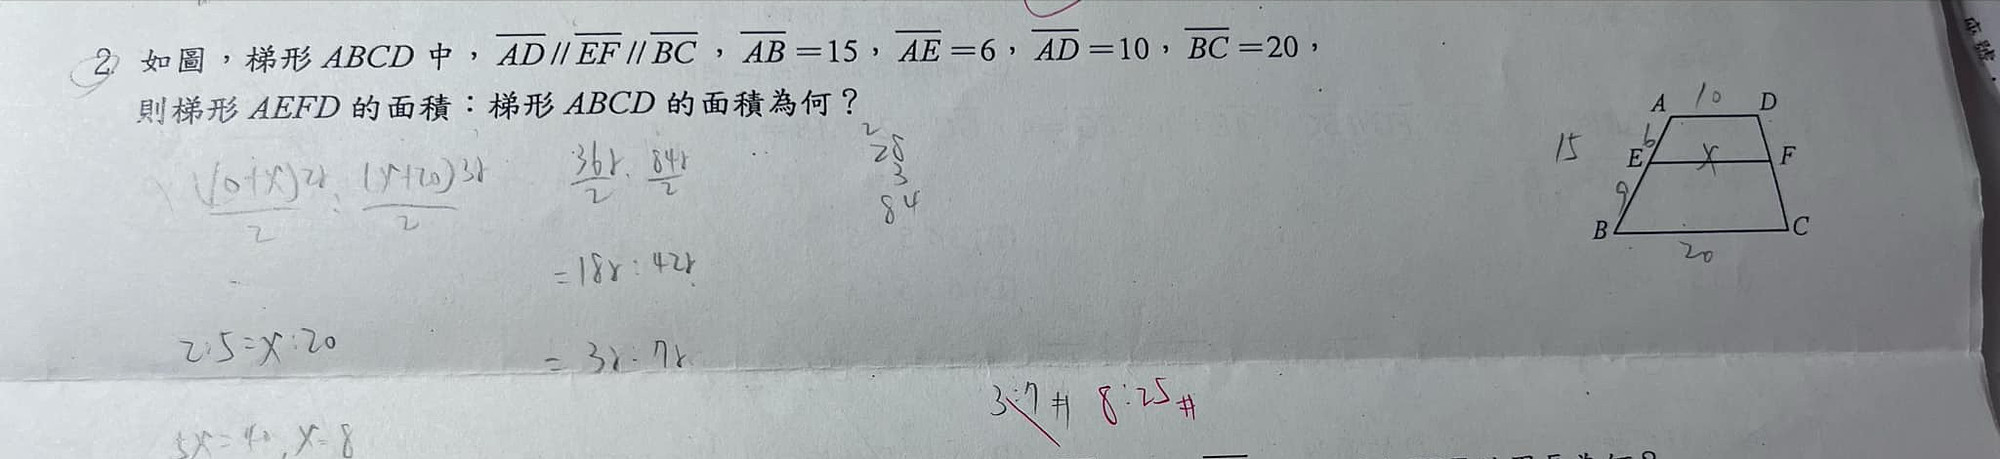 2. 如圖，梯形 ABCD 中，AD // EF // BC，AB＝15，AE＝6，AD＝10，BC＝20，
則梯形 AEFD 的面積：梯形 ABCD 的面積為何？
A 10 D
15 6
E X F
9
B C
20
(10+X)2r/2 : (X+20)3r/2
36r/2 : 84r/2
2
28
3
84
=18r:42r
2:5=X:20
=3r:7r
3:7# 8:25#
5X=40, X=8